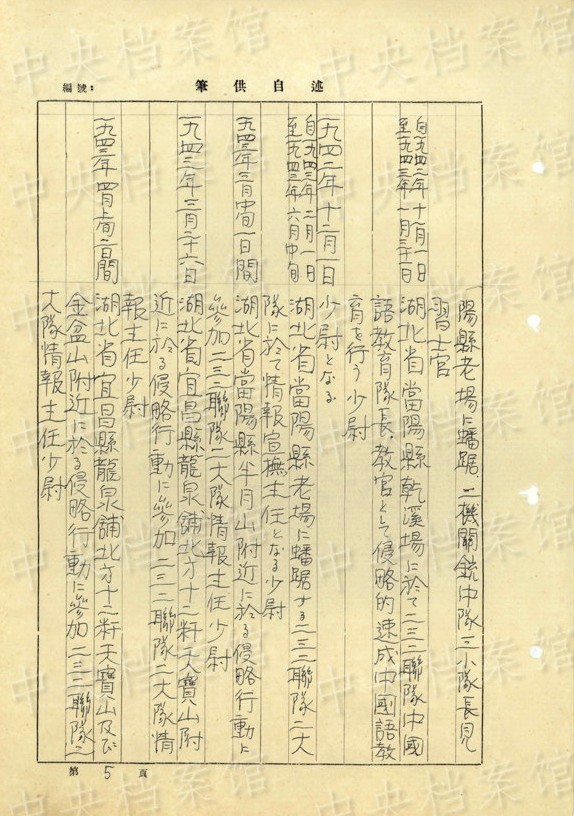 筆供自述
編號：
陽縣老場に蟠踞二機關銃中隊三小隊長見
習士官
自一九四二年十一月一日
至一九四三年一月三十一日
湖北省當陽縣乾溪場に於て二三二聯隊中國
語教育隊長、教官として侵略的速成中國語教
育を行う少尉
一九四二年十二月一日
少尉となる
自一九四三年二月一日
至一九四三年六月中旬
湖北省當陽縣老場に蟠踞する二三二聯隊二大
隊に於て情報宣撫主任となる少尉
一九四三年三月中旬一日間
湖北省當陽縣半月山附近に於る侵略行動に
參加二三二聯隊二大隊情報主任少尉
一九四三年三月二十六日
湖北省宜昌縣龍泉舖北方十二粁天寶山附
近に於る侵略行動に參加二三二聯隊二大隊情
報主任少尉
一九四三年四月上旬二日間
湖北省宜昌縣龍泉舖北方十二粁天寶山及び
金盆山附近に於る侵略行動に參加二三二聯隊二
大隊情報主任少尉
第5頁
中央档案馆